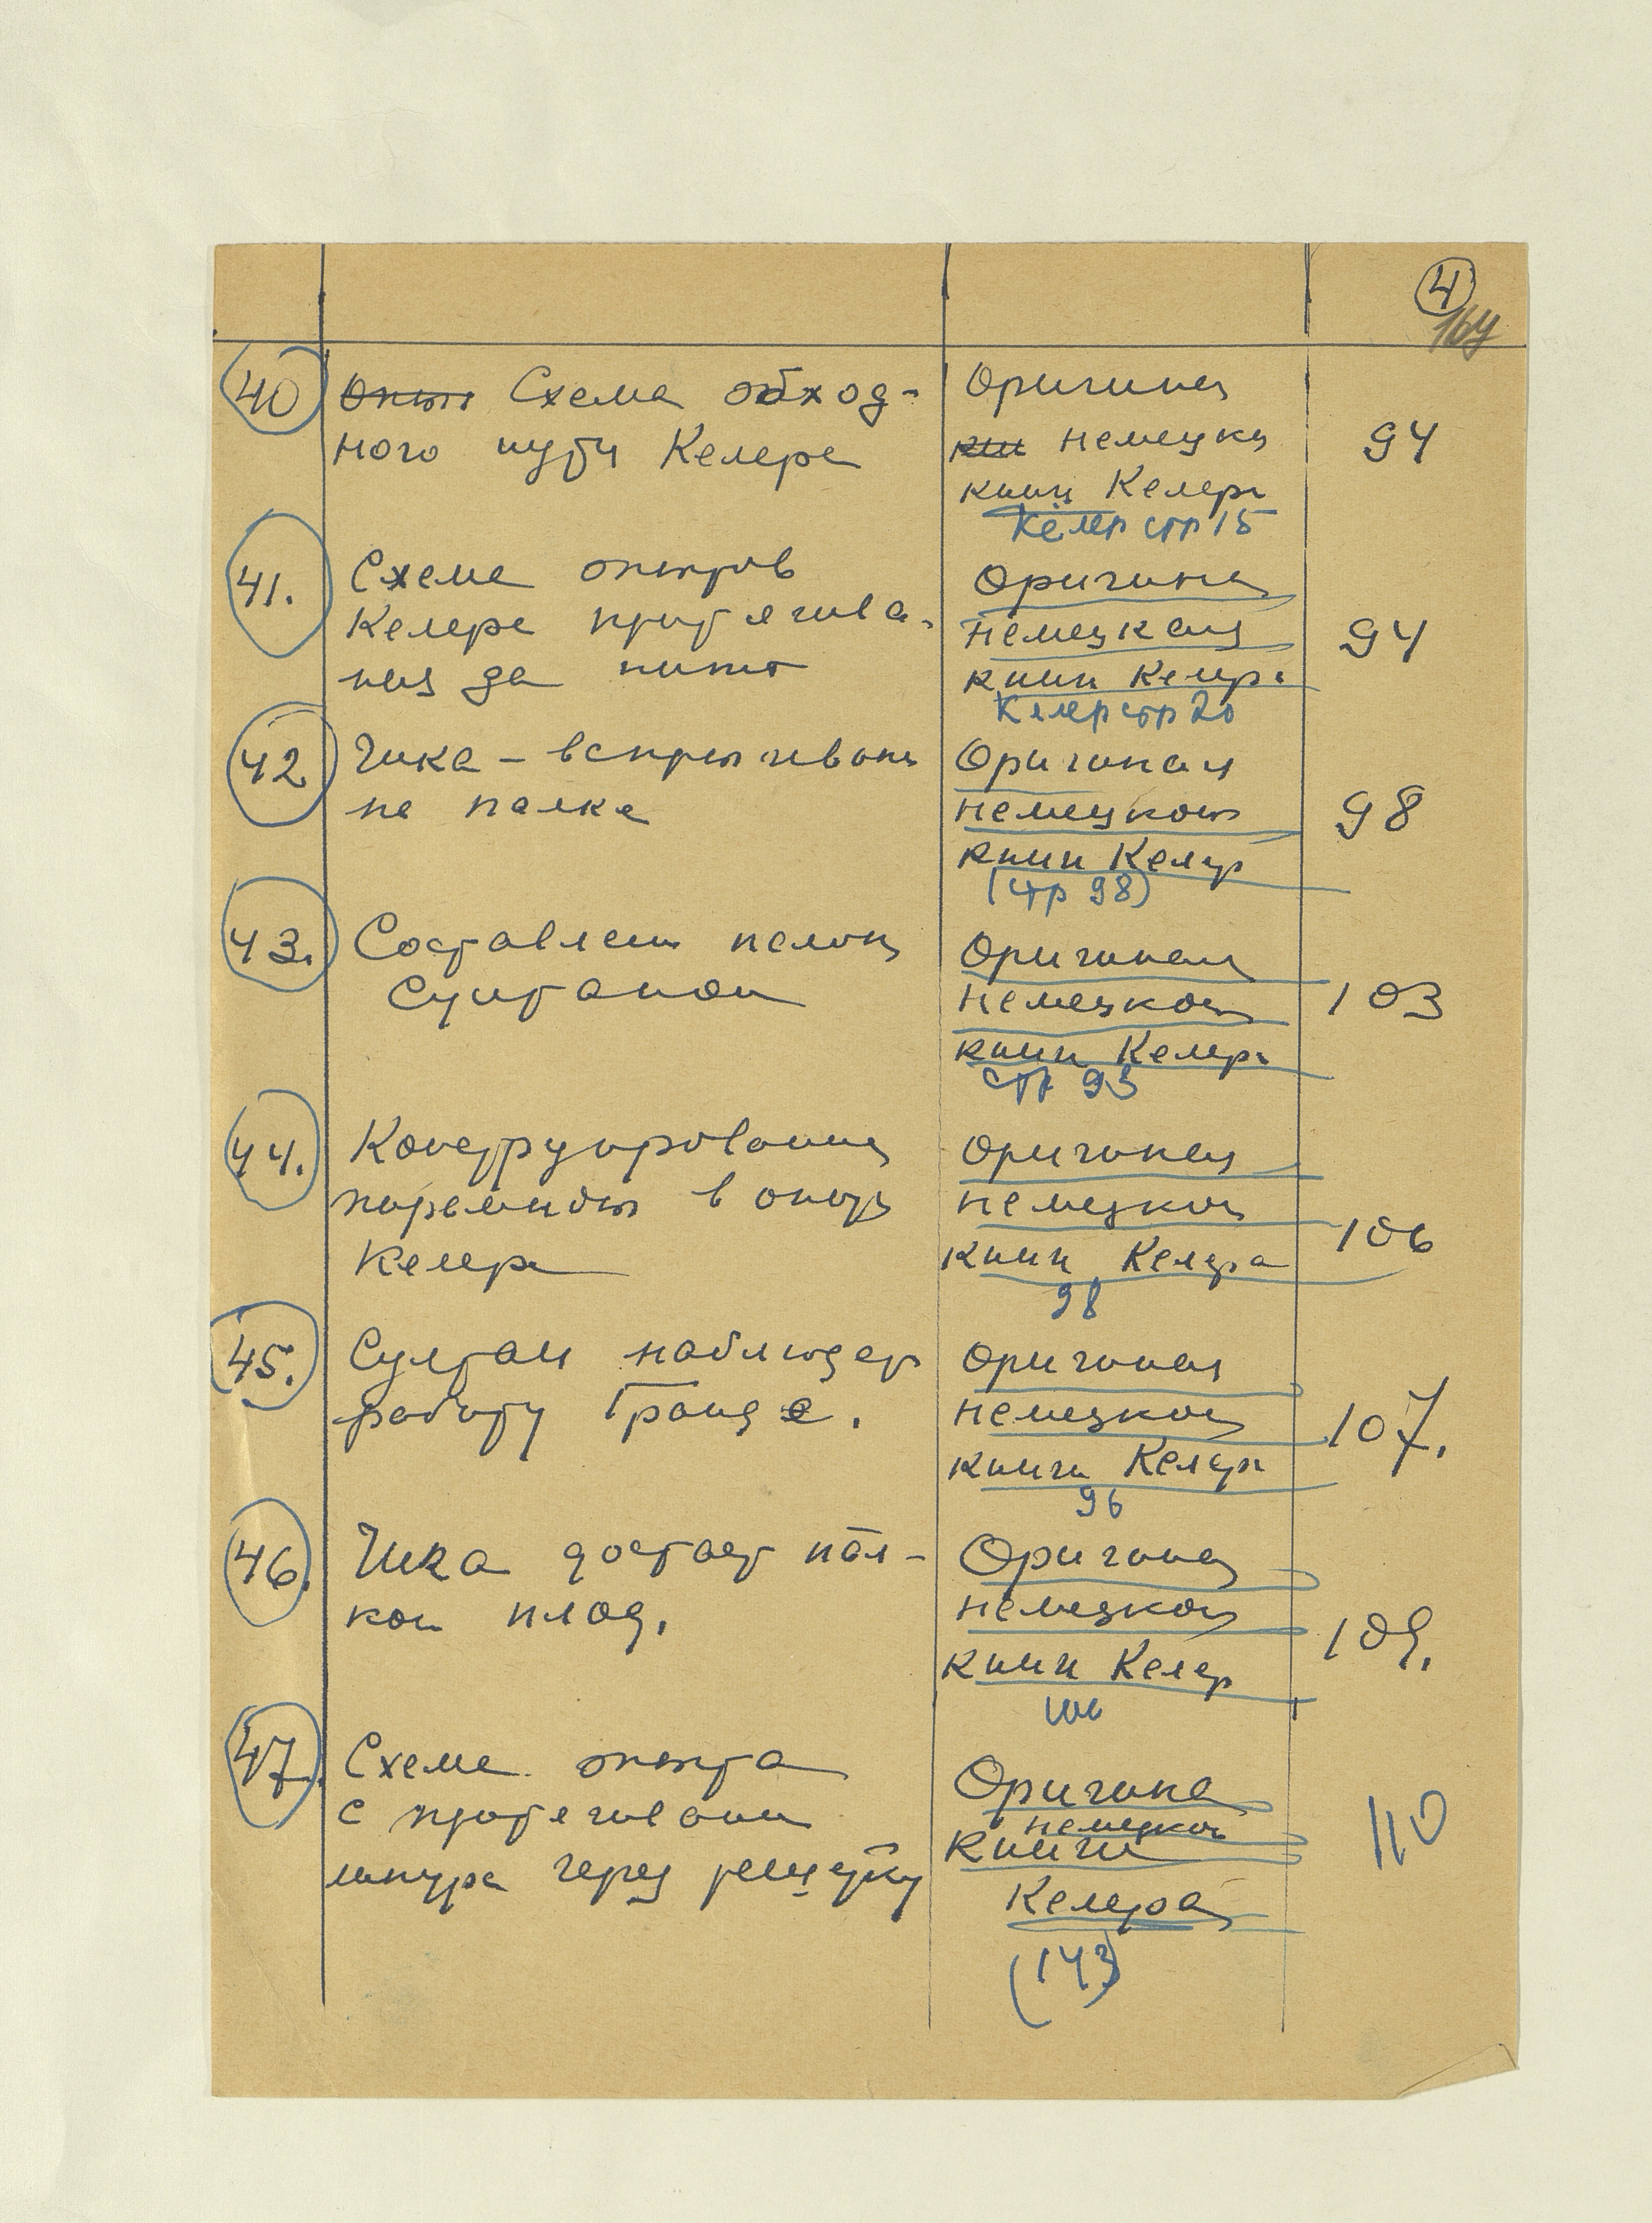 4
164
40 Опыт Схема обход-
ного пути Келера
Оригинал
кни немецкой
книги Келера
Келер стр 15
94
41. Схема опытов
Келера притягива-
ния за нитю
Оригинал
немецкой
книги Келера
Келер стр 20
94
42 Чика – вспрыгивание
на палке
Оригинал
немецкой
книги Келер
(стр 98)
98
43. Составлени палки
Султаном
Оригинал
немецкой
книги Келера
стр 93
103
44. Конструирование
пирамиды в опыте
Келера
Оригинал
немецкой
книги Келера
98
106
45. Султан наблюдает
работу Гранде.
Оригинал
немецкой
книги Келера
96
107.
46. Чика достает пал-
кой плод.
Оригинал
немецкой
книги Келер
109.
47. Схема опыта
с притягивани
шнура через решетку
Оригинал
немецкой
книги
Келера
(143)
110